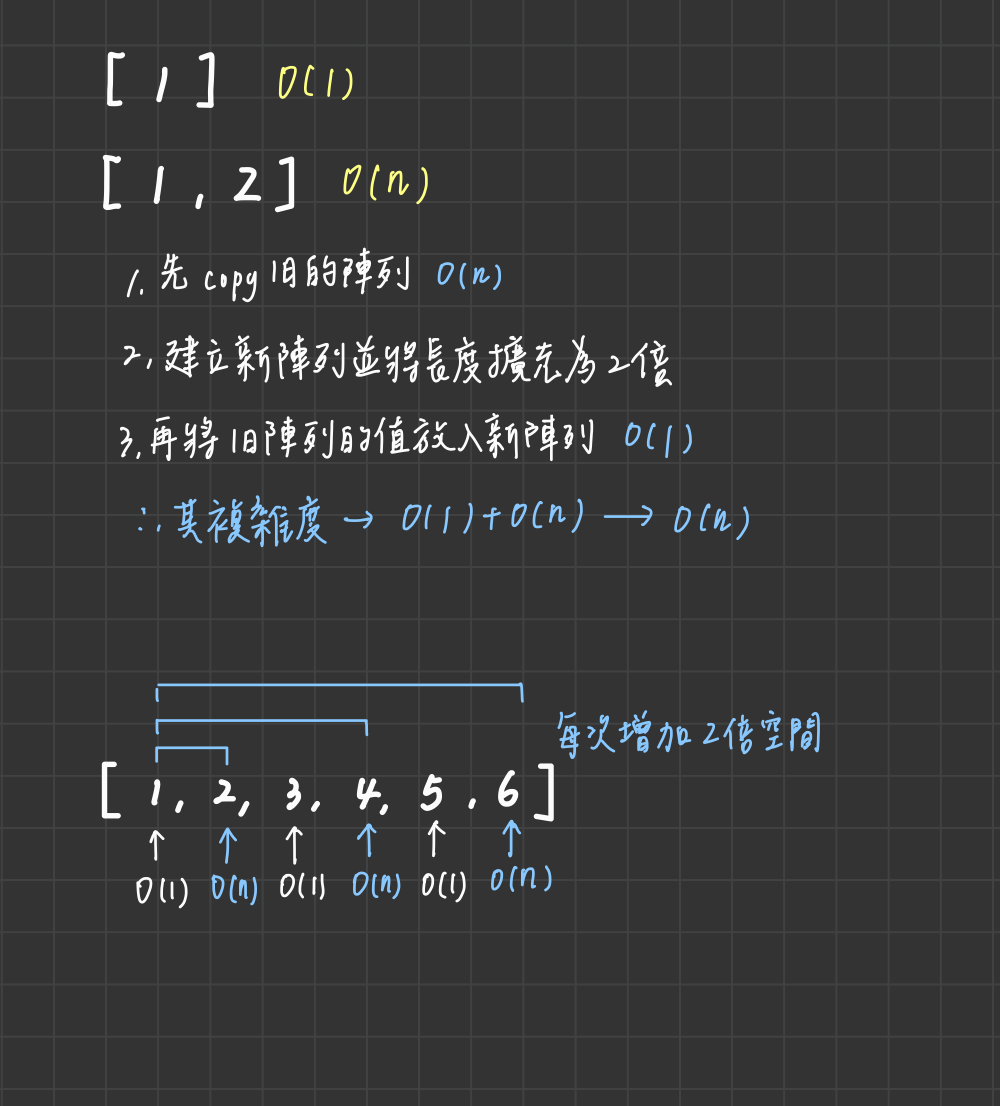 [ 1 ] O(1)
[ 1 , 2 ] O(n)
1. 先 copy 旧的陣列 O(n)
2, 建立新陣列並將長度擴充為2倍
3, 再將旧陣列的值放入新陣列 O(1)
∴ 其複雜度 → O(1) + O(n) → O(n)
每次增加2倍空間
[ 1, 2, 3, 4, 5, 6 ]
↑ ↑ ↑ ↑ ↑ ↑
O(1) O(n) O(1) O(n) O(1) O(n)